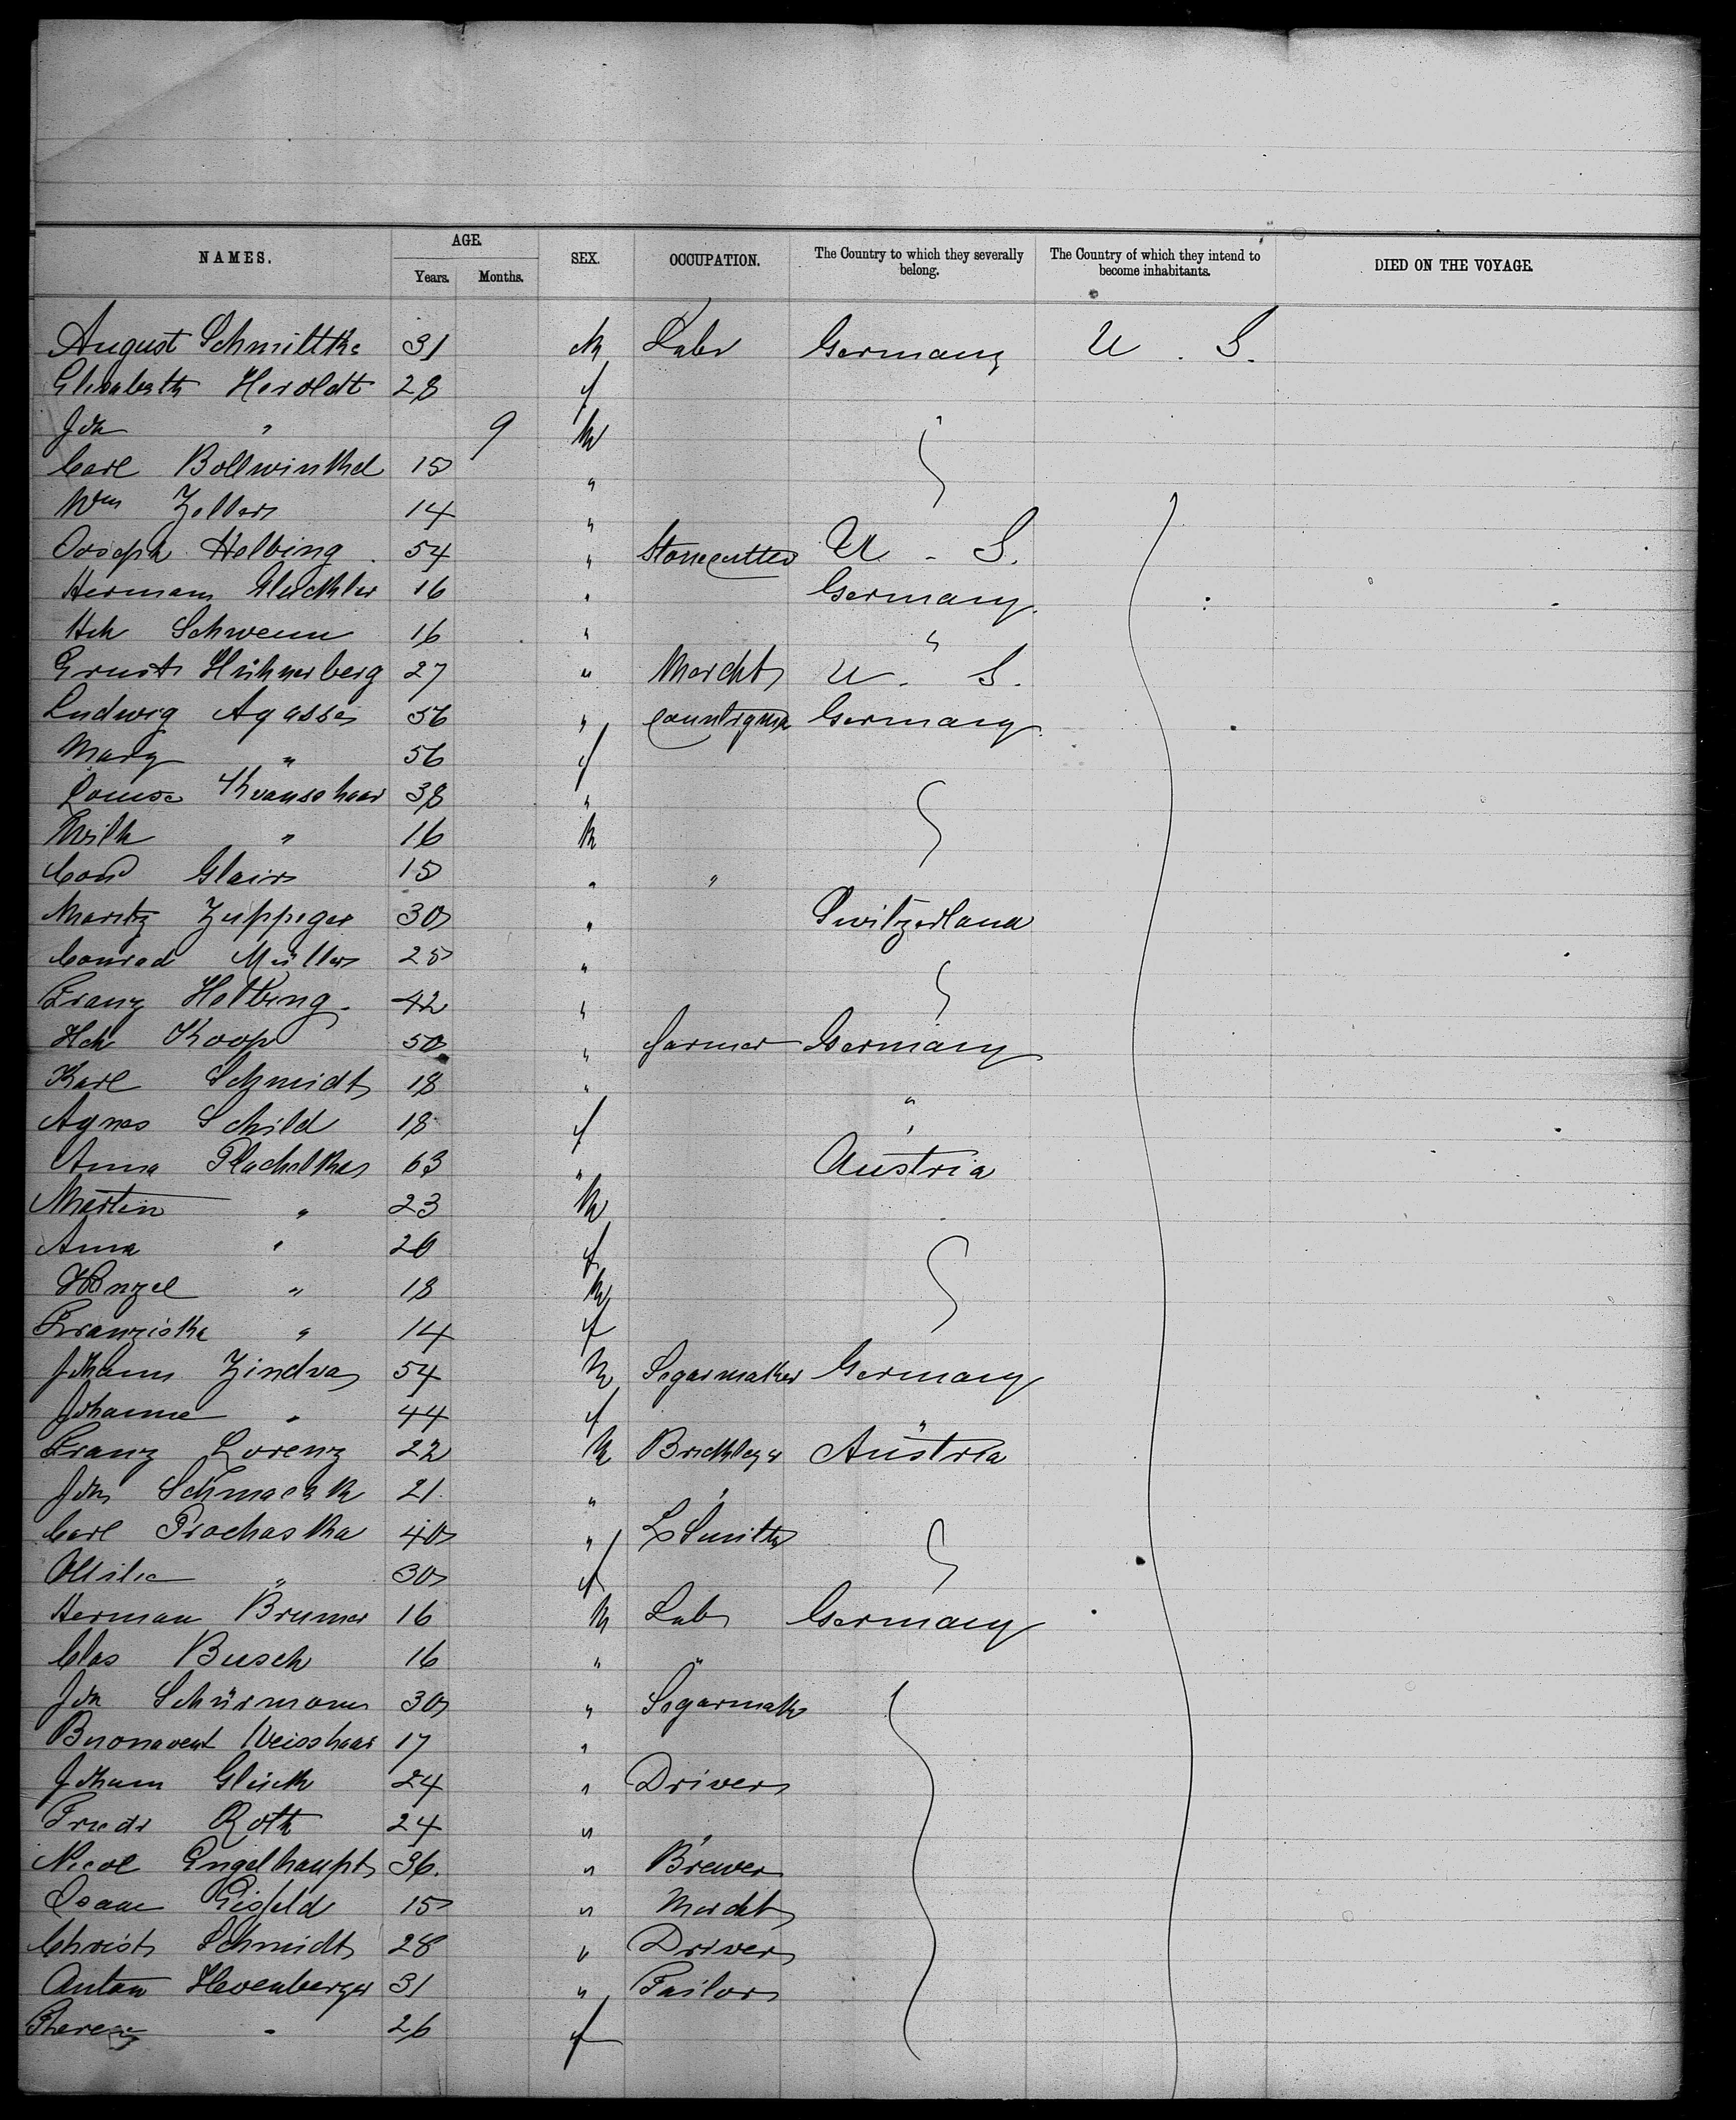 NAMES. AGE. Years. Months. SEX. OCCUPATION. The Country to which they severally belong. The Country of which they intend to become inhabitants. DIED ON THE VOYAGE.
August Schmittke 31 M Labr Germany U. S.
Elisabeth Heroldt 28 f
Joh " 9 M
Carl Bollwinkel 15 "
Wm Zellers 14 "
Joseph Helbing 54 " Stonecutter U. S.
Hermann 16 " Germany
Hch Schwenn 16 " "
Ernst Hühnerberg 27 " Mercht U. S.
Ludwig Agasse 56 " Countryman Germany
Marg " 56 f
Louise Kranshaar 38 "
Wilh " 16 M
Cond 15 " "
Moritz Zuppiger 30 " Switzerland
Conrad Müller 25 "
Franz Helbing 42 "
Hch Koop 50 " farmer Germany
Karl Schmidt 18 " "
Agnes Schild 18 f "
Anna Plachetka 63 " Austria
Martin " 23 M
Anna " 20 f
Wenzel " 18 M
Franziska " 14 f
Johann Zindra 54 M Segarmaker Germany
Johanne " 44 f "
Franz Lorenz 22 M Bricklayer Austria
Joh 21 " "
Carl Prochaska 40 " L Smith
Ottilie " 30 f
Herman Brumer 16 M Lab Germany
Clas Busch 16 " "
Joh Schürmann 30 " Segarmak
Buonavent Weisshaar 17 "
Johann Glück 24 " Driver
Friedr Roth 24 " "
Nicol Engelhaupt 36. " Brewer
Isaac Eisfeld 15 " Mercht
Christ Schmidt 28 " Driver
Anton Hevenberger 31 " Tailor
Therese " 26 f